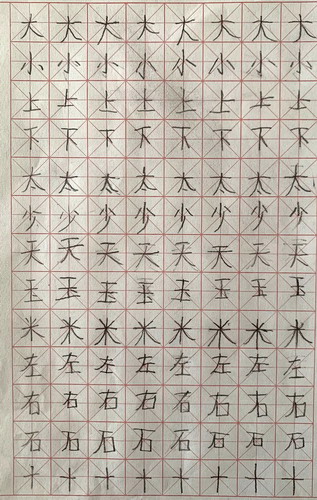 大大大大大大大大
小小小小小小小小
上上上上上上上上
下下下下下下下下
太太太太太太太太
少少少少少少少少
天天天天天天天天
玉玉玉玉玉玉玉玉
米米米米米米米米
左左左左左左左左
右右右右右右右右
石石石石石石石石
十十十十十十十十